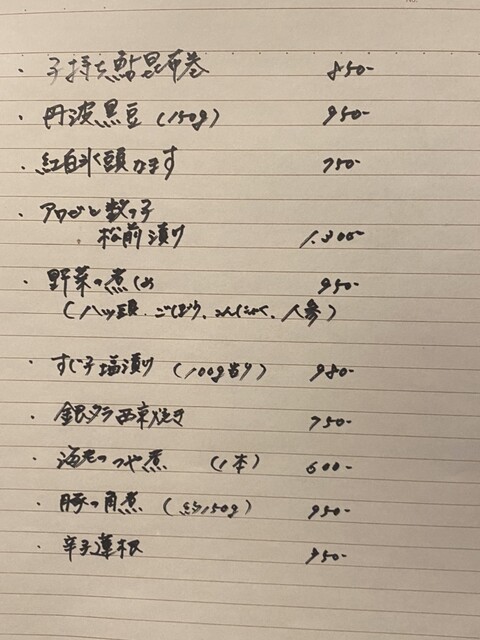 ・子持ち鮎昆布巻 850-
・丹波黒豆 (150g) 950-
・紅白氷頭なます 750-
・アワビと数の子
松前漬け 1.300-
・野菜の煮しめ 950-
(八ツ頭、ごぼう、こんにゃく、人参)
・すじ子塩漬け (100g当り) 980-
・銀タラ西京焼き 750-
・海老のつや煮 (1本) 600-
・豚の角煮 (約150g) 950-
・辛子蓮根 950-